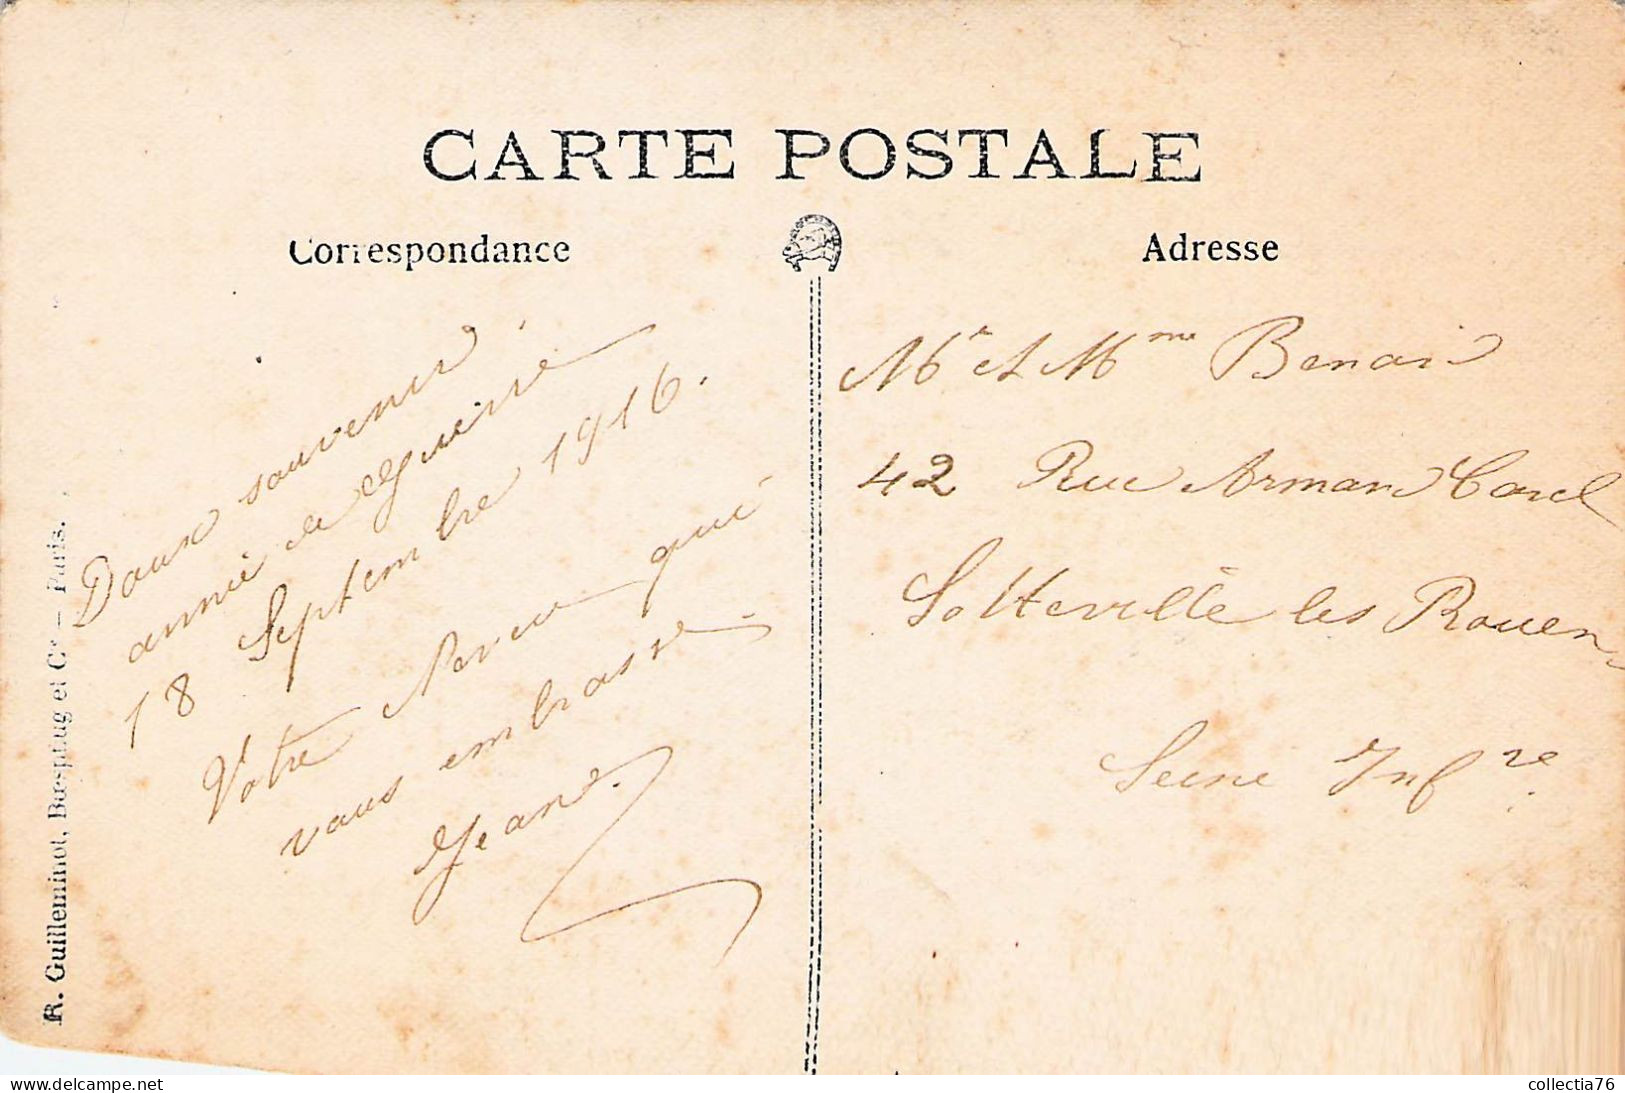 CARTE POSTALE
Correspondance
Adresse
Doux souvenir
année de Guerre
18 Septembre 1916.
Votre Neveu qui
vous embrasse.
Jean.
Mr et Mme Benoi
42 Rue Arman Carel
Sotteville les Rouen
Seine Infre.
R. Guilleminot, Bœspflug et Cie – Paris.
delcampe.net
collectia76